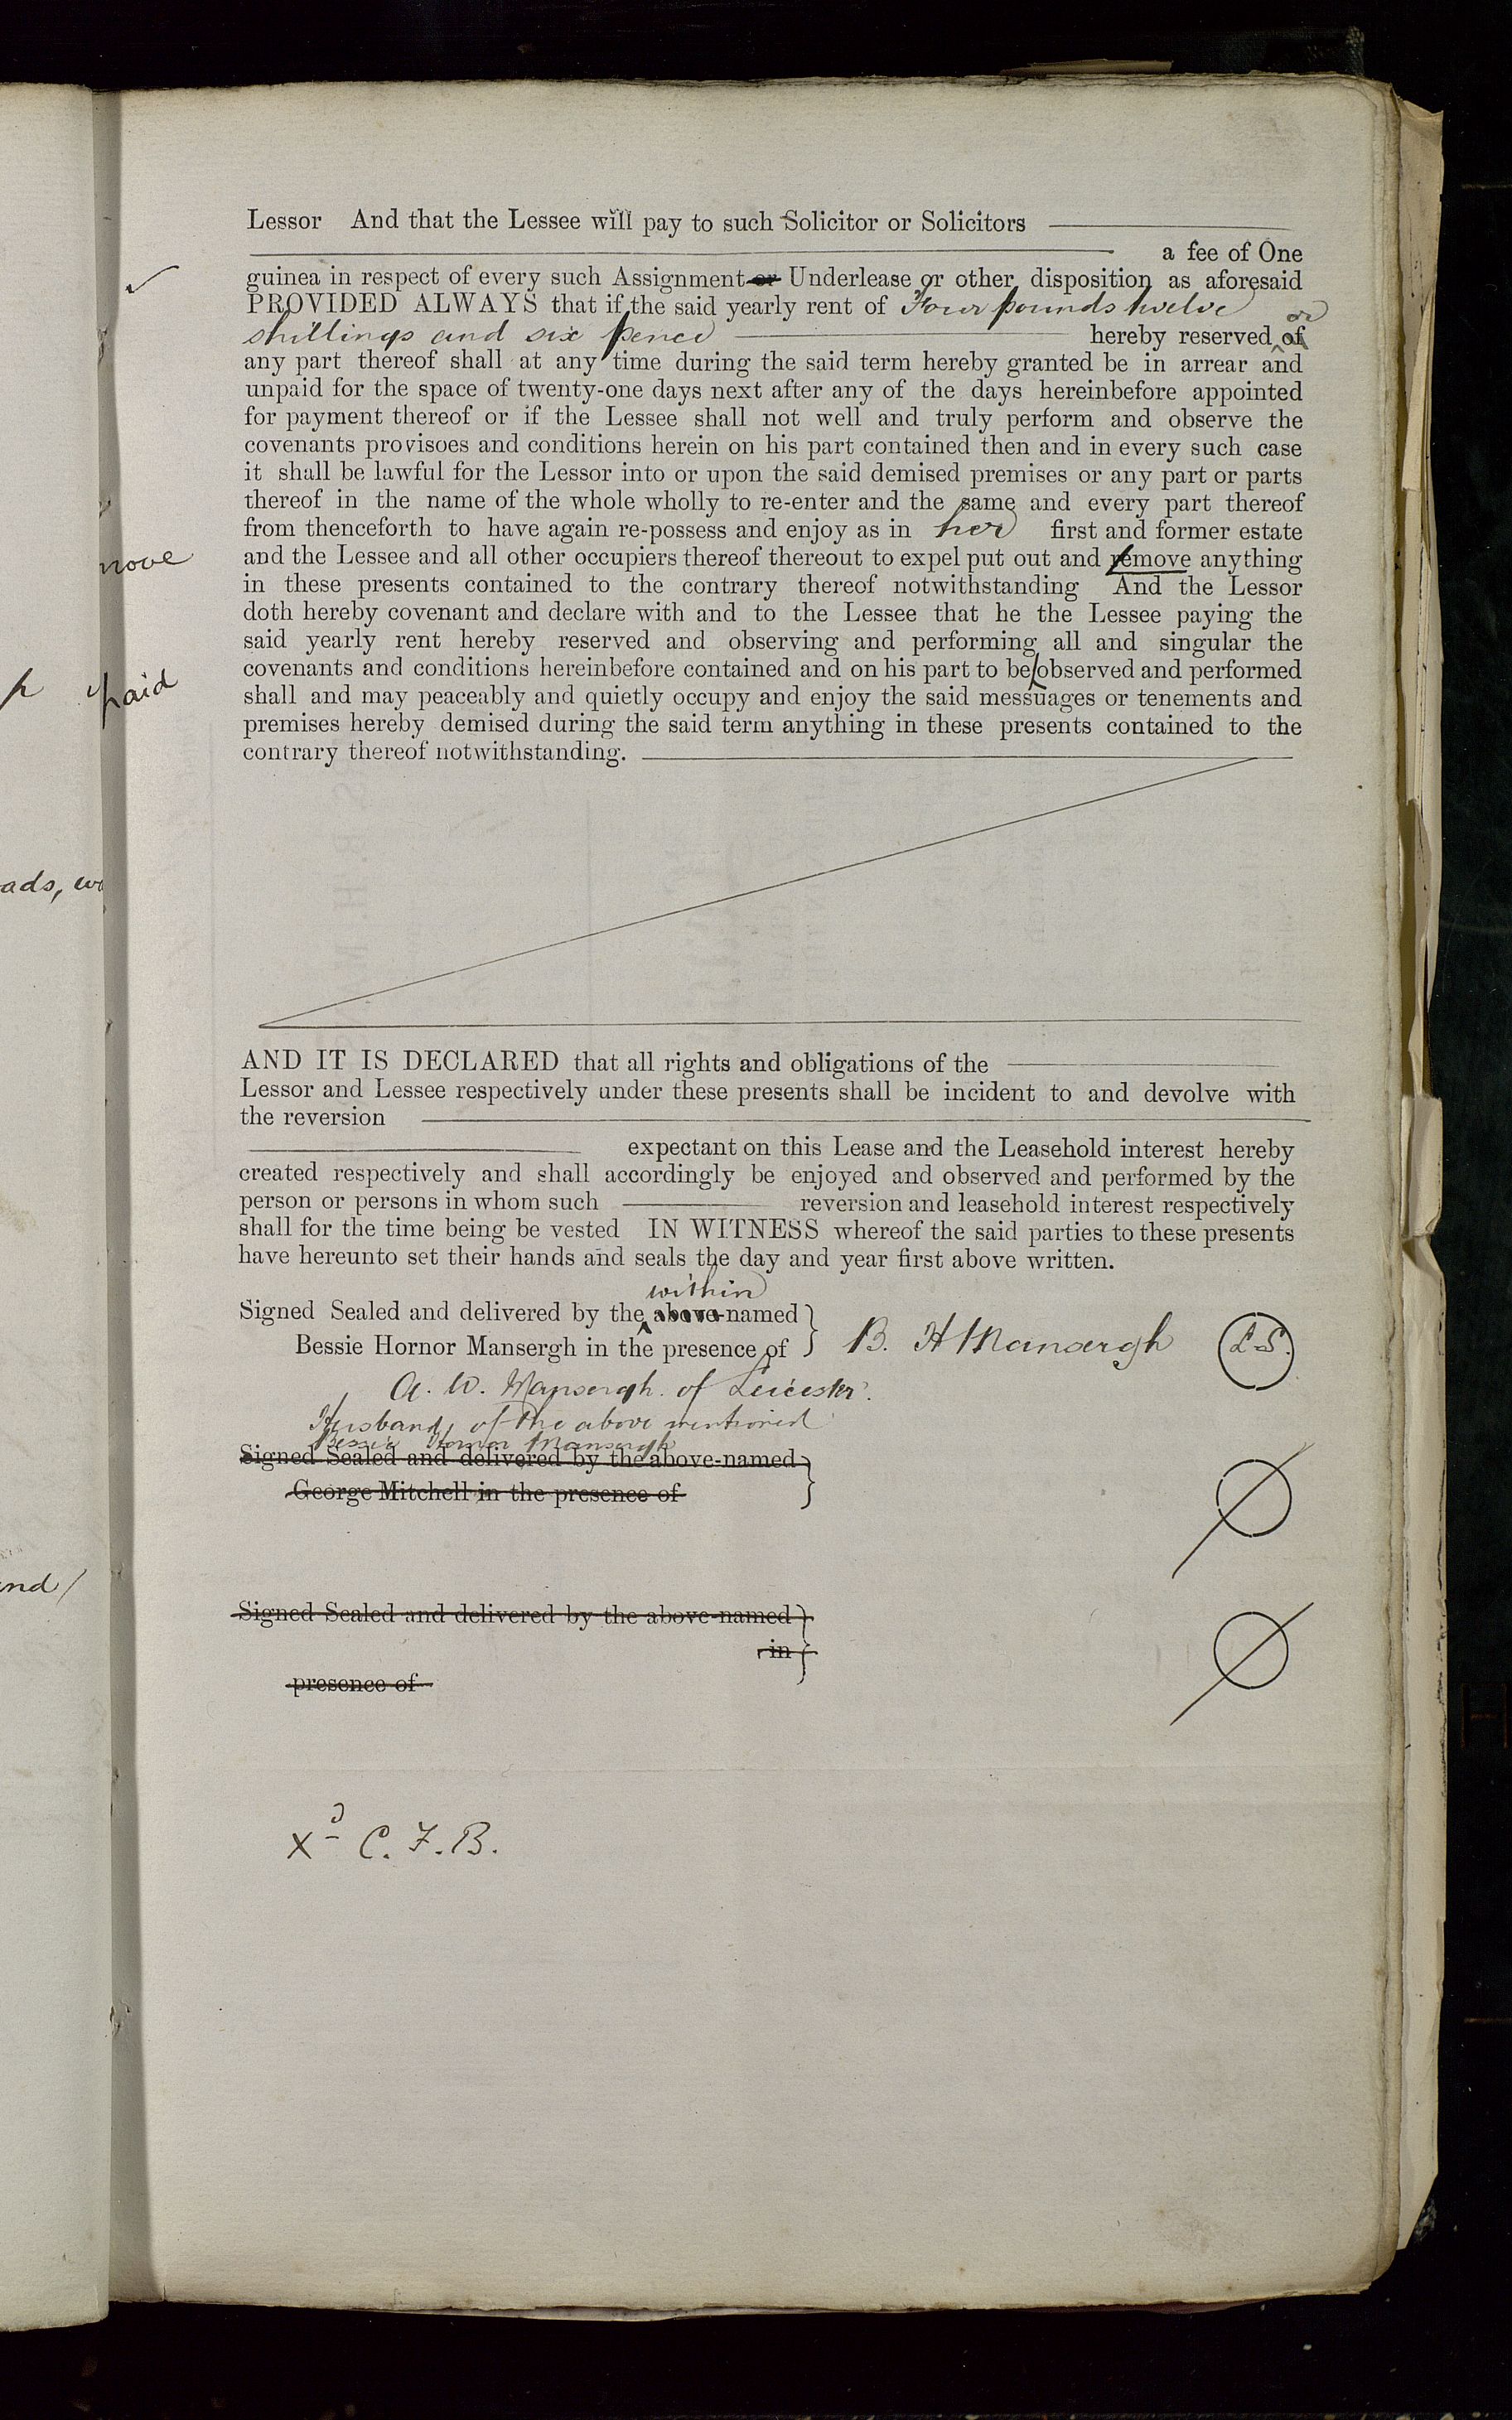 Lessor And that the Lessee will pay to such Solicitor or Solicitors
a fee of One
guinea in respect of every such Assignment or Underlease or other disposition as aforesaid
PROVIDED ALWAYS that if the said yearly rent of Four pounds twelve
or
shillings and six pence hereby reserved of
any part thereof shall at any time during the said term hereby granted be in arrear and
unpaid for the space of twenty-one days next after any of the days hereinbefore appointed
for payment thereof or if the Lessee shall not well and truly perform and observe the
covenants provisoes and conditions herein on his part contained then and in every such case
it shall be lawful for the Lessor into or upon the said demised premises or any part or parts
thereof in the name of the whole wholly to re-enter and the same and every part thereof
from thenceforth to have again re-possess and enjoy as in her first and former estate
and the Lessee and all other occupiers thereof thereout to expel put out and remove anything
in these presents contained to the contrary thereof notwithstanding And the Lessor
doth hereby covenant and declare with and to the Lessee that he the Lessee paying the
said yearly rent hereby reserved and observing and performing all and singular the
covenants and conditions hereinbefore contained and on his part to be observed and performed
shall and may peaceably and quietly occupy and enjoy the said messuages or tenements and
premises hereby demised during the said term anything in these presents contained to the
contrary thereof notwithstanding.
AND IT IS DECLARED that all rights and obligations of the
Lessor and Lessee respectively under these presents shall be incident to and devolve with
the reversion
expectant on this Lease and the Leasehold interest hereby
created respectively and shall accordingly be enjoyed and observed and performed by the
person or persons in whom such reversion and leasehold interest respectively
shall for the time being be vested IN WITNESS whereof the said parties to these presents
have hereunto set their hands and seals the day and year first above written.
within
Signed Sealed and delivered by the above-named
Bessie Hornor Mansergh in the presence of B. H Mansergh L.S.
A. W. Mansergh of Leicester.
Husband of the above mentioned
Bessie Hornor Mansergh
Signed Sealed and delivered by the above-named
George Mitchell in the presence of
Signed Sealed and delivered by the above-named
in
presence of
xd C. F. B.
move
paid
ads,
and